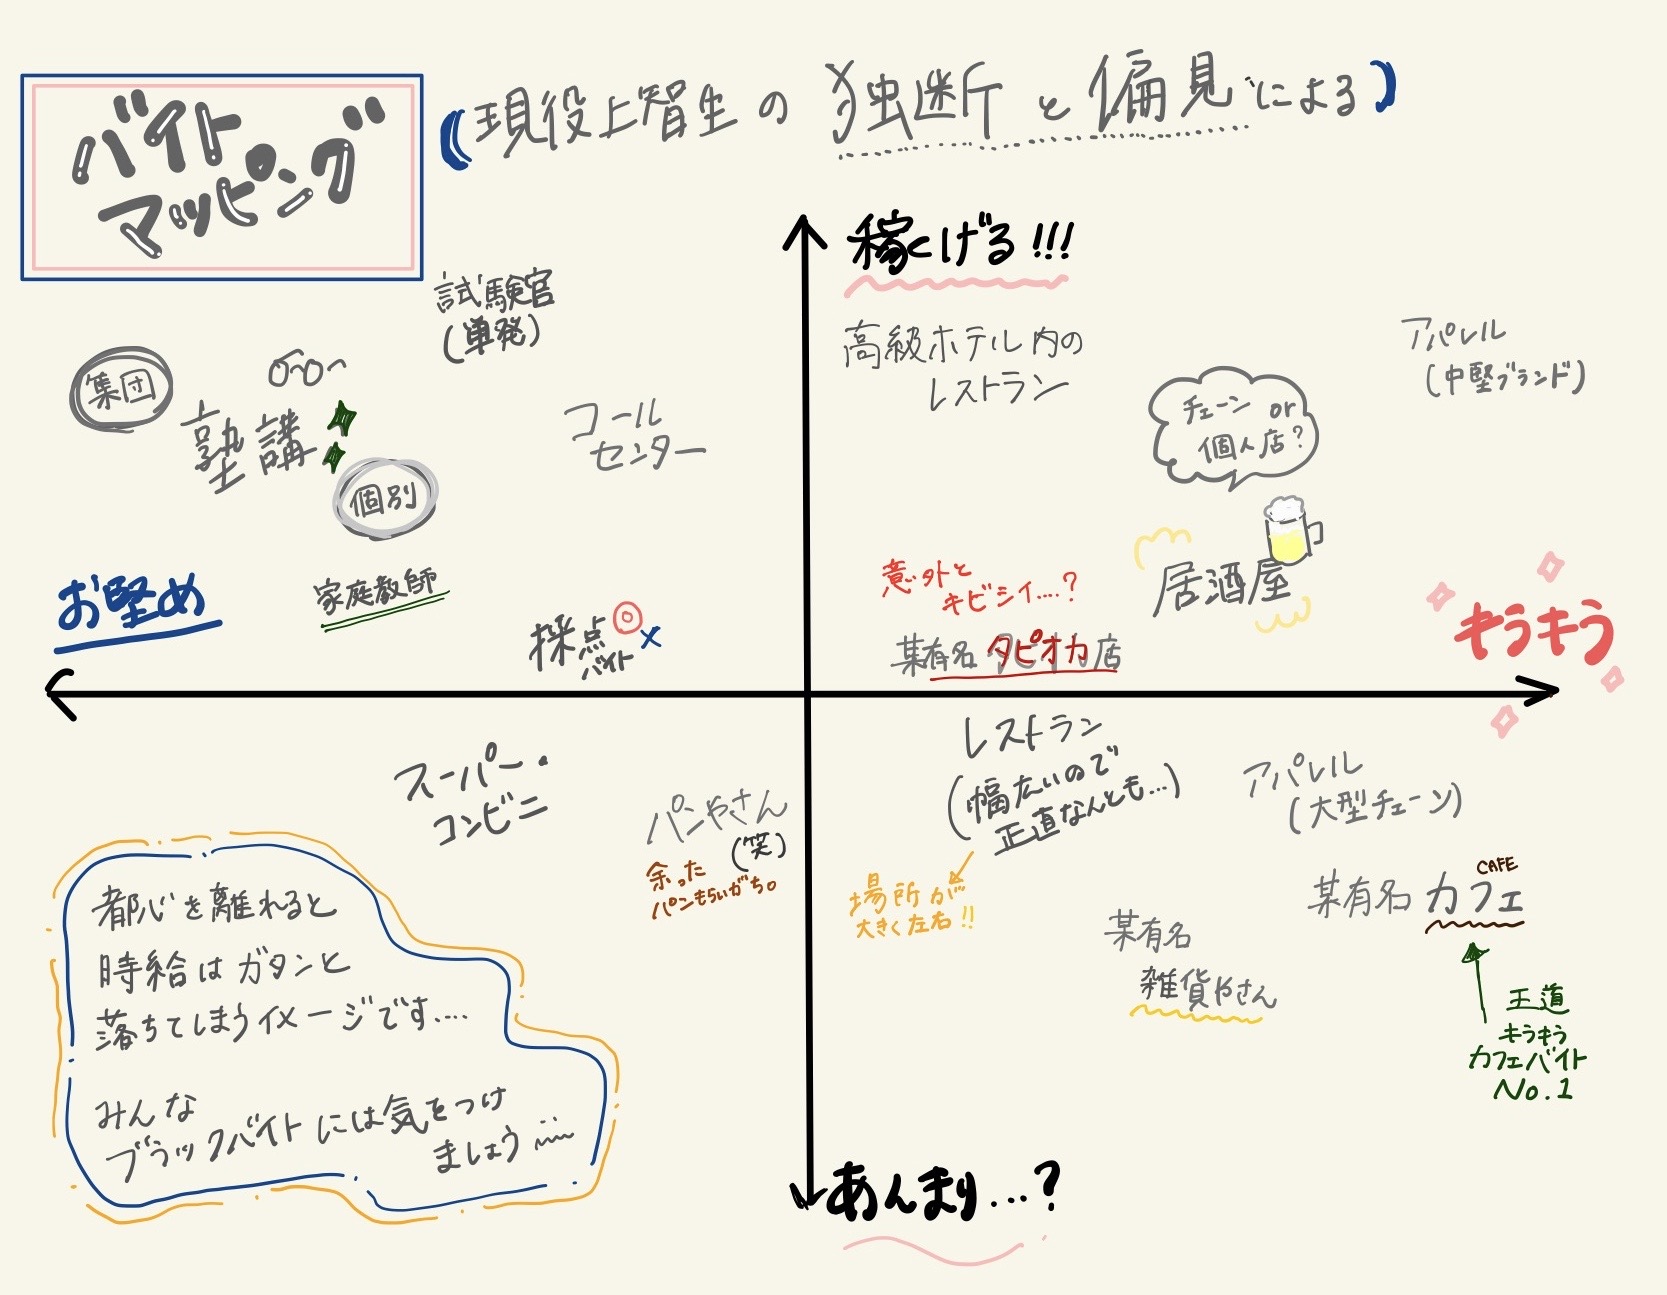 バイト
マッピング
(現役上智生の独断と偏見による)
稼げる!!!
試験官
(単発)
集団
塾講
個別
コール
センター
高級ホテル内の
レストラン
アパレル
(中堅ブランド)
チェーン or
個人店?
居酒屋
お堅め
家庭教師
採点
バイト
意外と
キビシイ....?
某有名タピオカ店
キラキラ
スーパー・
コンビニ
パンやさん
(笑)
余った
パンもらいがち。
レストラン
(幅広いので
正直なんとも...)
場所が
大きく左右!!
アパレル
(大型チェーン)
CAFE
某有名カフェ
某有名
雑貨やさん
王道
キラキラ
カフェバイト
No.1
都心を離れると
時給はガタンと
落ちてしまうイメージです....
みんな
ブラックバイトには気をつけ
ましょう....
あんまり...?